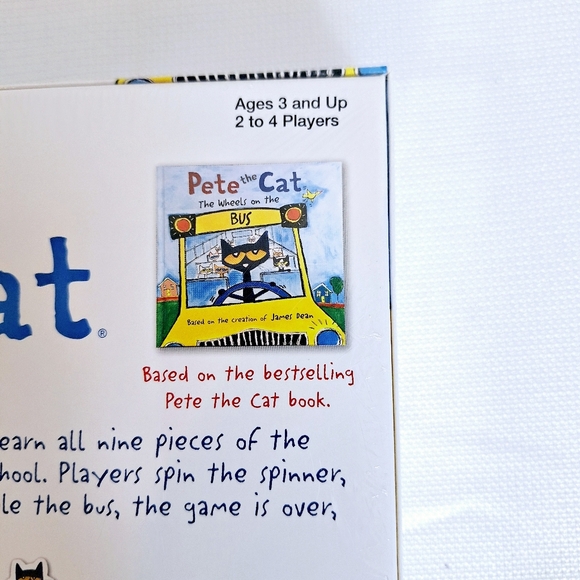 Ages 3 and Up
2 to 4 Players
Pete the Cat
The Wheels on the
BUS
Based on the creation of James Dean
at®
Based on the bestselling
Pete the Cat book.
earn all nine pieces of the
hool. Players spin the spinner,
le the bus, the game is over,